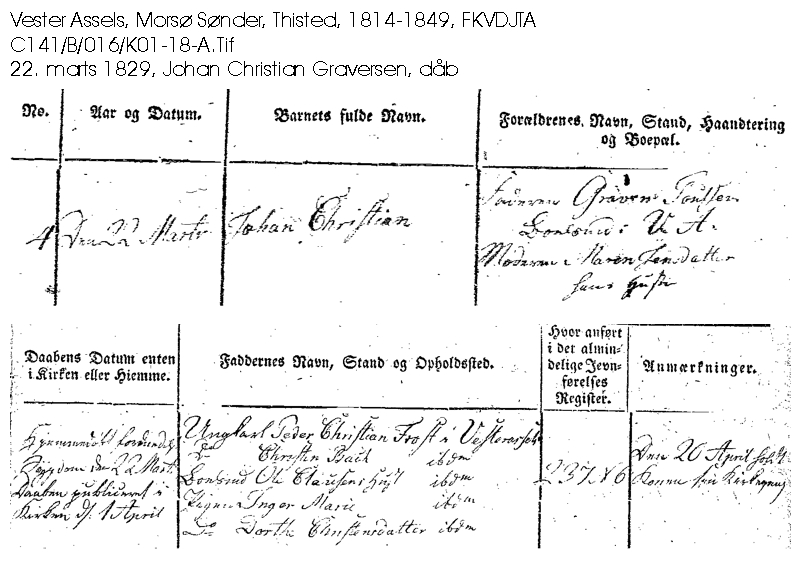 Vester Assels, Morsø Sønder, Thisted, 1814-1849, FKVDJTA
C141/B/016/K01-18-A.Tif
22. marts 1829, Johan Christian Graversen, dåb
No.
Aar og Datum.
Barnets fulde Navn.
Forældrenes Navn, Stand, Haandtering
og Boepæl.
4
Den 22 Marts
Johan Christian
Faderen Graven Poulsen
Boelsmd i V. A.
Moderen Maren Jensdatter
hans Hustr
Daabens Datum enten
i Kirken eller Hiemme.
Faddernes Navn, Stand og Opholdssted.
Hvor anført
i det almin-
delige Jevn-
førelses
Register.
Anmærkninger.
Hjemmedøbt
den 22 Marts
Daaben publiceret i
Kirken d. 1 April
Ungkarl Peder Christian Frost i Vesterassels
Do Christen Back ibdm
Boelsmd Ole Clausens Hust ibdm
Pigen Inger Marie ibdm
Do Dorthe Christensdatter ibdm
237 6
Den 20 April holdt
Konen sin Kirkegang